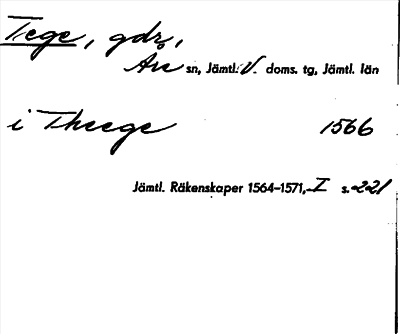 Tege, gdr,
Åre sn, Jämtl. V. doms. tg, Jämtl. län
i Theege 1566
Jämtl. Räkenskaper 1564–1571, I s. 221